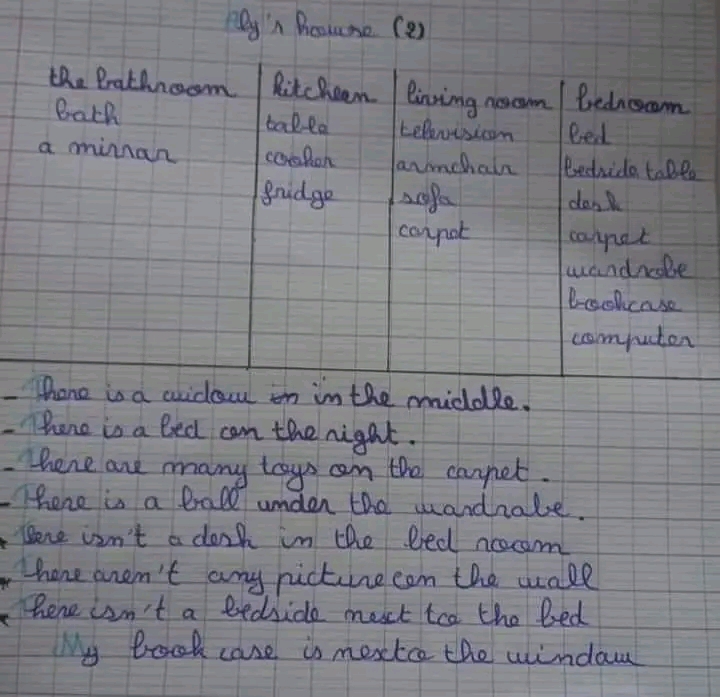 ly's house (2)
the bathroom kitchen living room bedroom
bath table television bed
a mirrar cooker armchair bedside table
fridge sofa desk
carpet carpet
wardrobe
bookcase
computer
- There is a widow in in the middle.
- There is a bed on the right.
- There are many toys on the carpet.
- There is a ball under the wardrabe.
here isn't a desk in the bed room
There aren't any picture on the wall
There isn't a bedside next too the bed
My book case is nexto the windaw